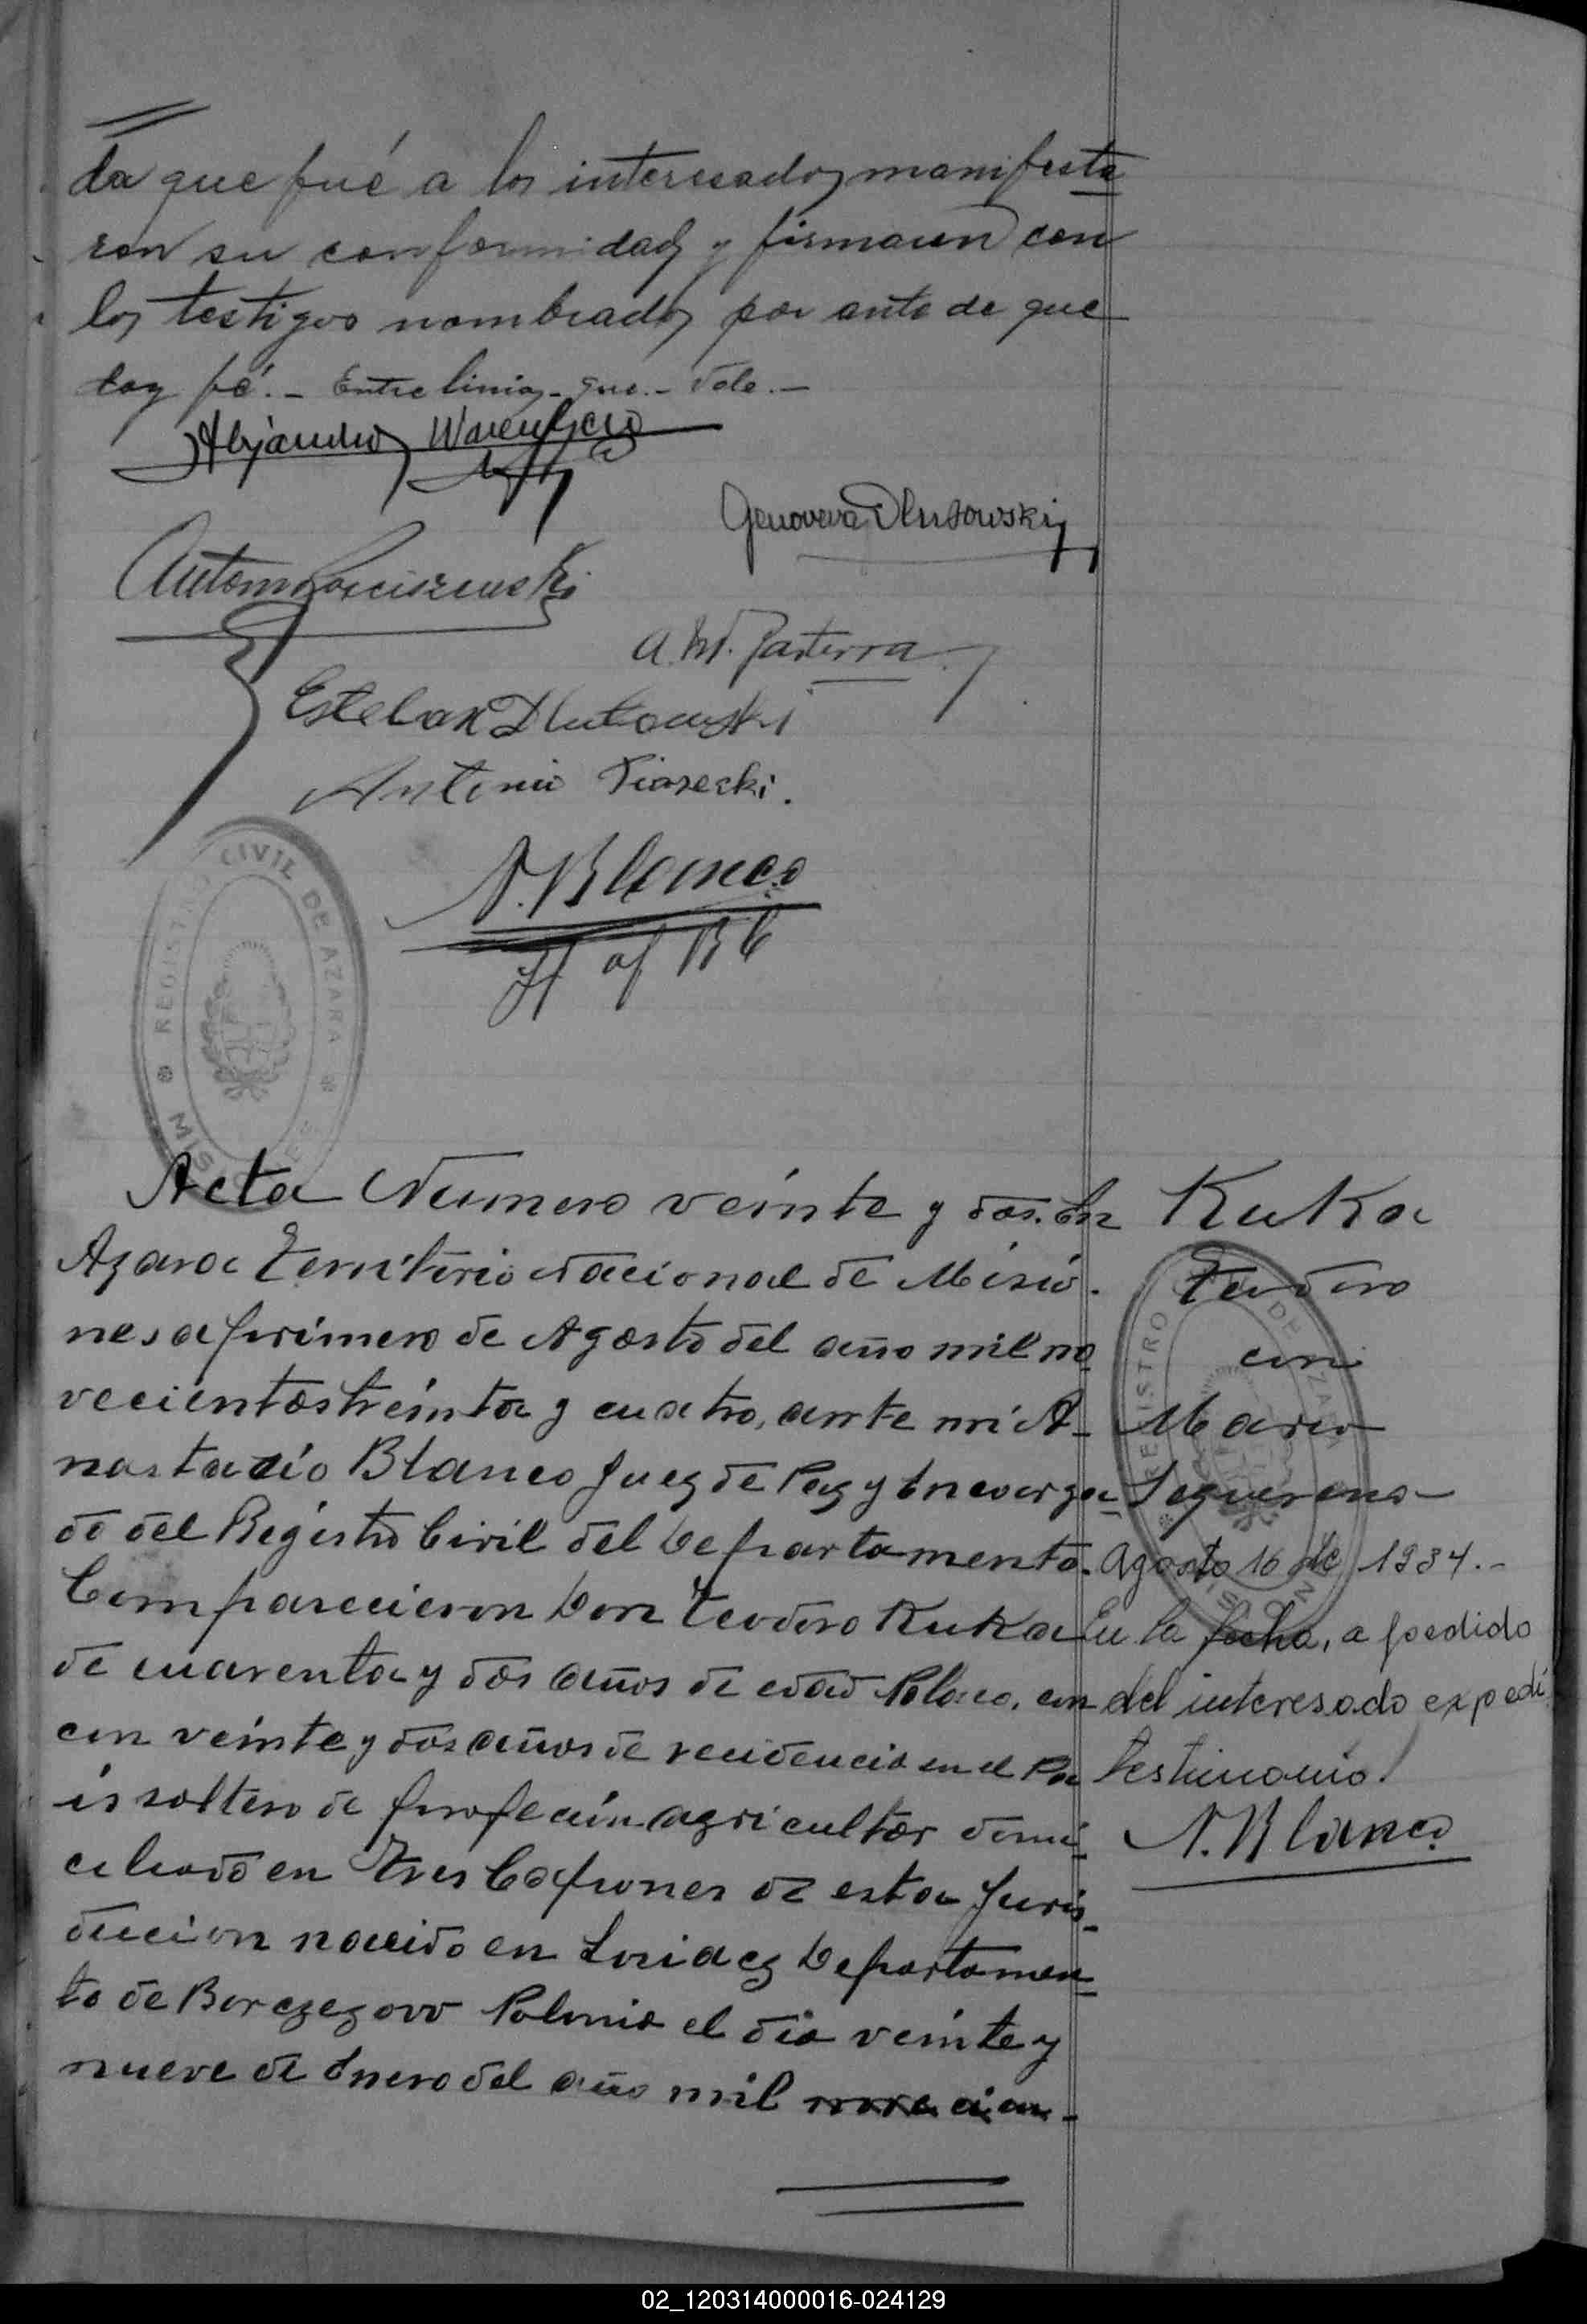 da que fué a los interesados manifesta
ron su conformidad y firmaron con
los testigos nombrados por ante de que
doy fé.- Entre linias - que.- Vale.-
Alejandro
Genoveva Dlusowski
Antonio
A. M.
Esteban Dlutowski
Antonio Piasecki.
A. Blanco
REGISTRO CIVIL DE AZARA
MISIONES
Acta Numero veinte y dos. En
Azara Territorio Nacional de Misio-
nes a primero de Agosto del año mil no
vecientos treinta y cuatro, ante mi A-
nastacio Blanco Juez de Paz y Encarga
do del Registro Civil del Departamento.
Comparecieron Don Teodoro Kuka
de cuarenta y dos años de edad Polaco, con
con veinte y dos años de recidencia en el Pa
is soltero de profecion agricultor domi
ciliado en Tres Capones de esta Juris-
diccion nacido en Departamen
to de Borczczow Polonia el dia veinte y
nueve de Enero del año mil
Kuka
Teodoro
con
Maria
REGISTRO CIVIL DE AZARA
MISIONES
Agosto 16 de 1934.-
En la fecha, a pedido
del interesado expedí
testimonio.
A. Blanco
02_120314000016-024129